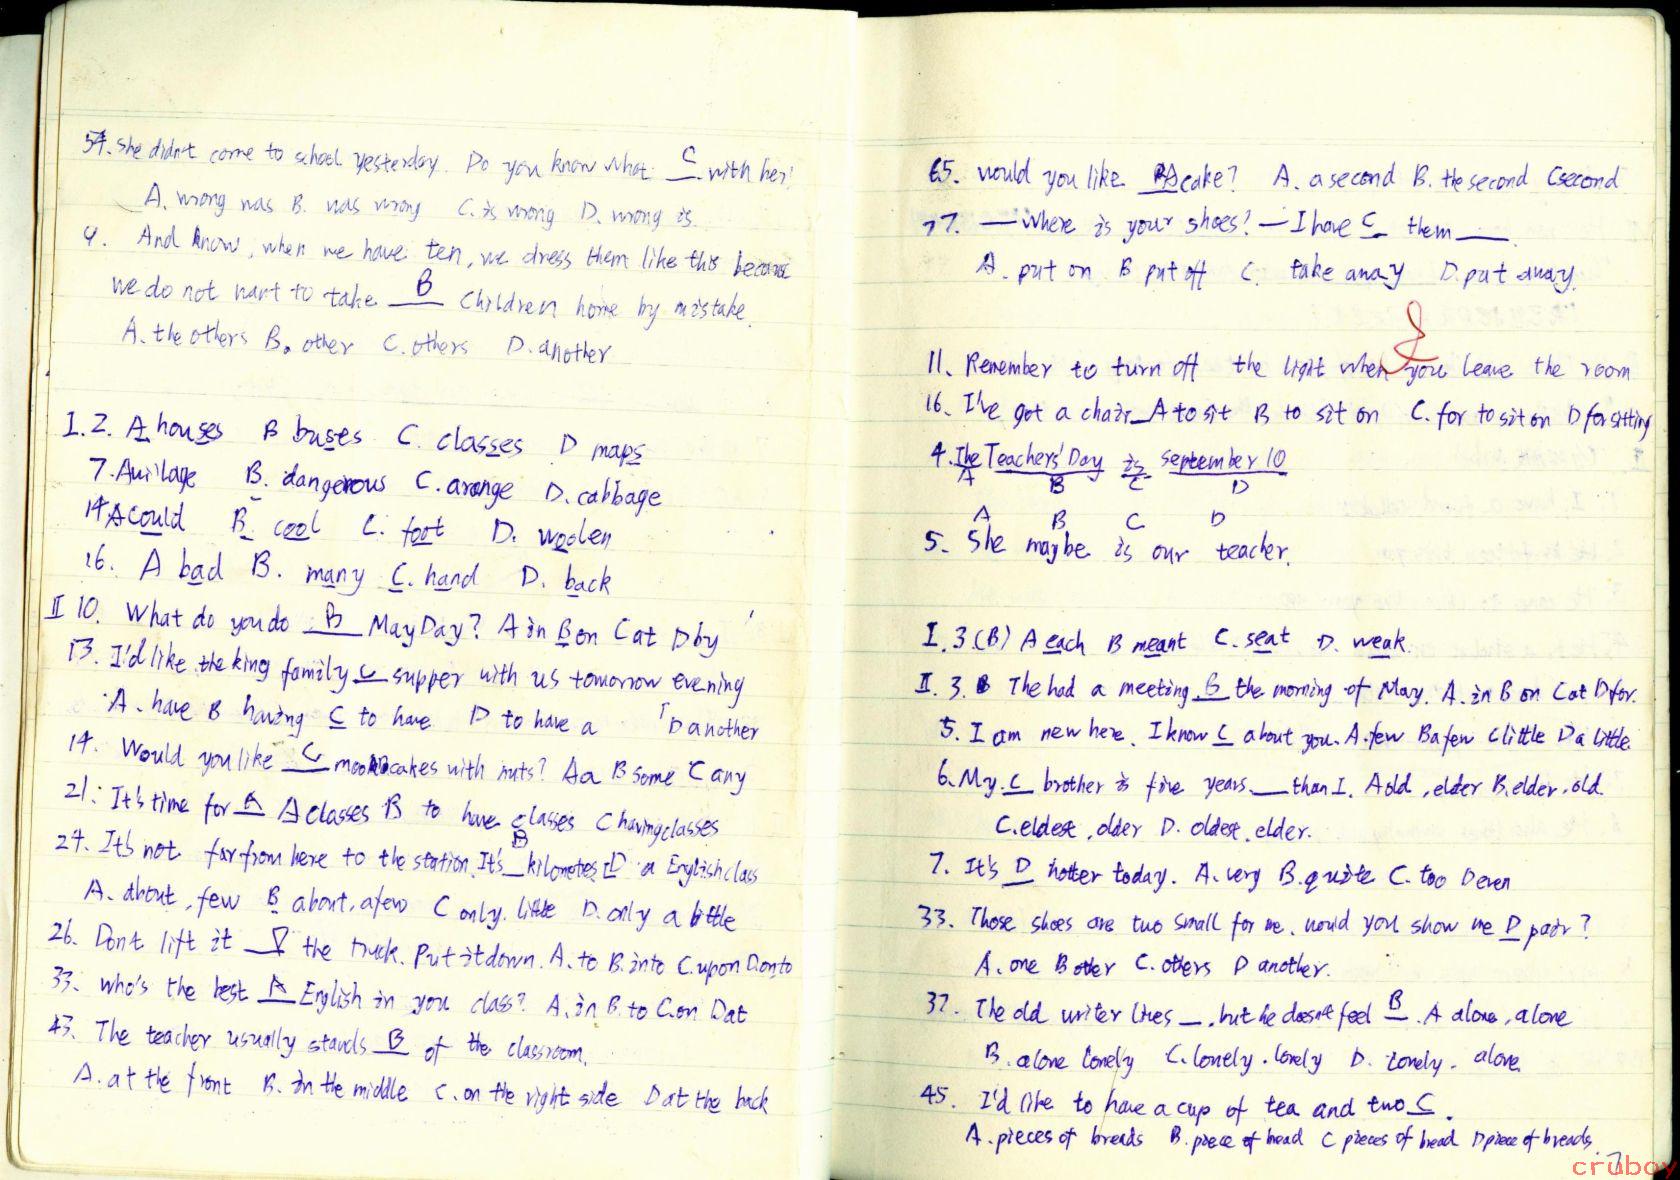 54. She didn't come to school yesterday. Do you know what C with her?
A. wrong was B. was wrong C. is wrong D. wrong is
4. And know, when we have ten, we dress them like this because
we do not want to take B children home by mistake.
A. the others B. other C. others D. another
I. 2. A houses B buses C. classes D maps
7. A village B. dangerous C. arange D. cabbage
14 A could B. cool C. foot D. woolen
16. A bad B. many C. hand D. back
II 10. What do you do B May Day? A in B on C at D by
13. I'd like the king family C supper with us tomorrow evening
A. have B having C to have D to have a
D another
14. Would you like C mooncakes with nuts? A a B some C any
21. It's time for A A classes B to have classes C having classes
D a English class
24. It's not far from here to the station. It's B kilometes
A. about, few B about, a few C only. little D. only a little
26. Don't lift it D the truck. Put it down. A. to B. into C. upon D. onto
33. who's the best A English in you class? A. in B. to C. on D at
43. The teacher usually stands B of the classroom.
A. at the front B. in the middle C. on the right side D at the back
65. would you like A cake? A. a second B. the second C second
77. — where is your shoes? — I have C them ___.
A. put on B put off C. take away D. put away.
11. Remember to turn off the light when you leave the room
16. I've got a chair A to sit B to sit on C. for to sit on D for sitting
4. The Teachers' Day is september 10
A B C D
A B C D
5. She maybe is our teacher.
I. 3. (B) A each B meant C. seat D. weak.
II. 3. The had a meeting B the morning of May. A. in B on C at D for.
5. I am new here. I know C about you. A. few B a few C little D a little.
6. My C brother is five years ___ than I. A old, elder B. elder, old.
C. eldest, older D. oldest, elder.
7. It's D hotter today. A. very B. quite C. too D even
33. Those shoes are two small for me. would you show me D pair?
A. one B other C. others D another.
37. The old writer lives ___, but he doesn't feel B. A alone, alone
B. alone lonely C. lonely. lonely D. lonely. alone.
45. I'd like to have a cup of tea and two C.
A. pieces of breads B. piece of bread C pieces of bread D piece of breads.
7
cruboy